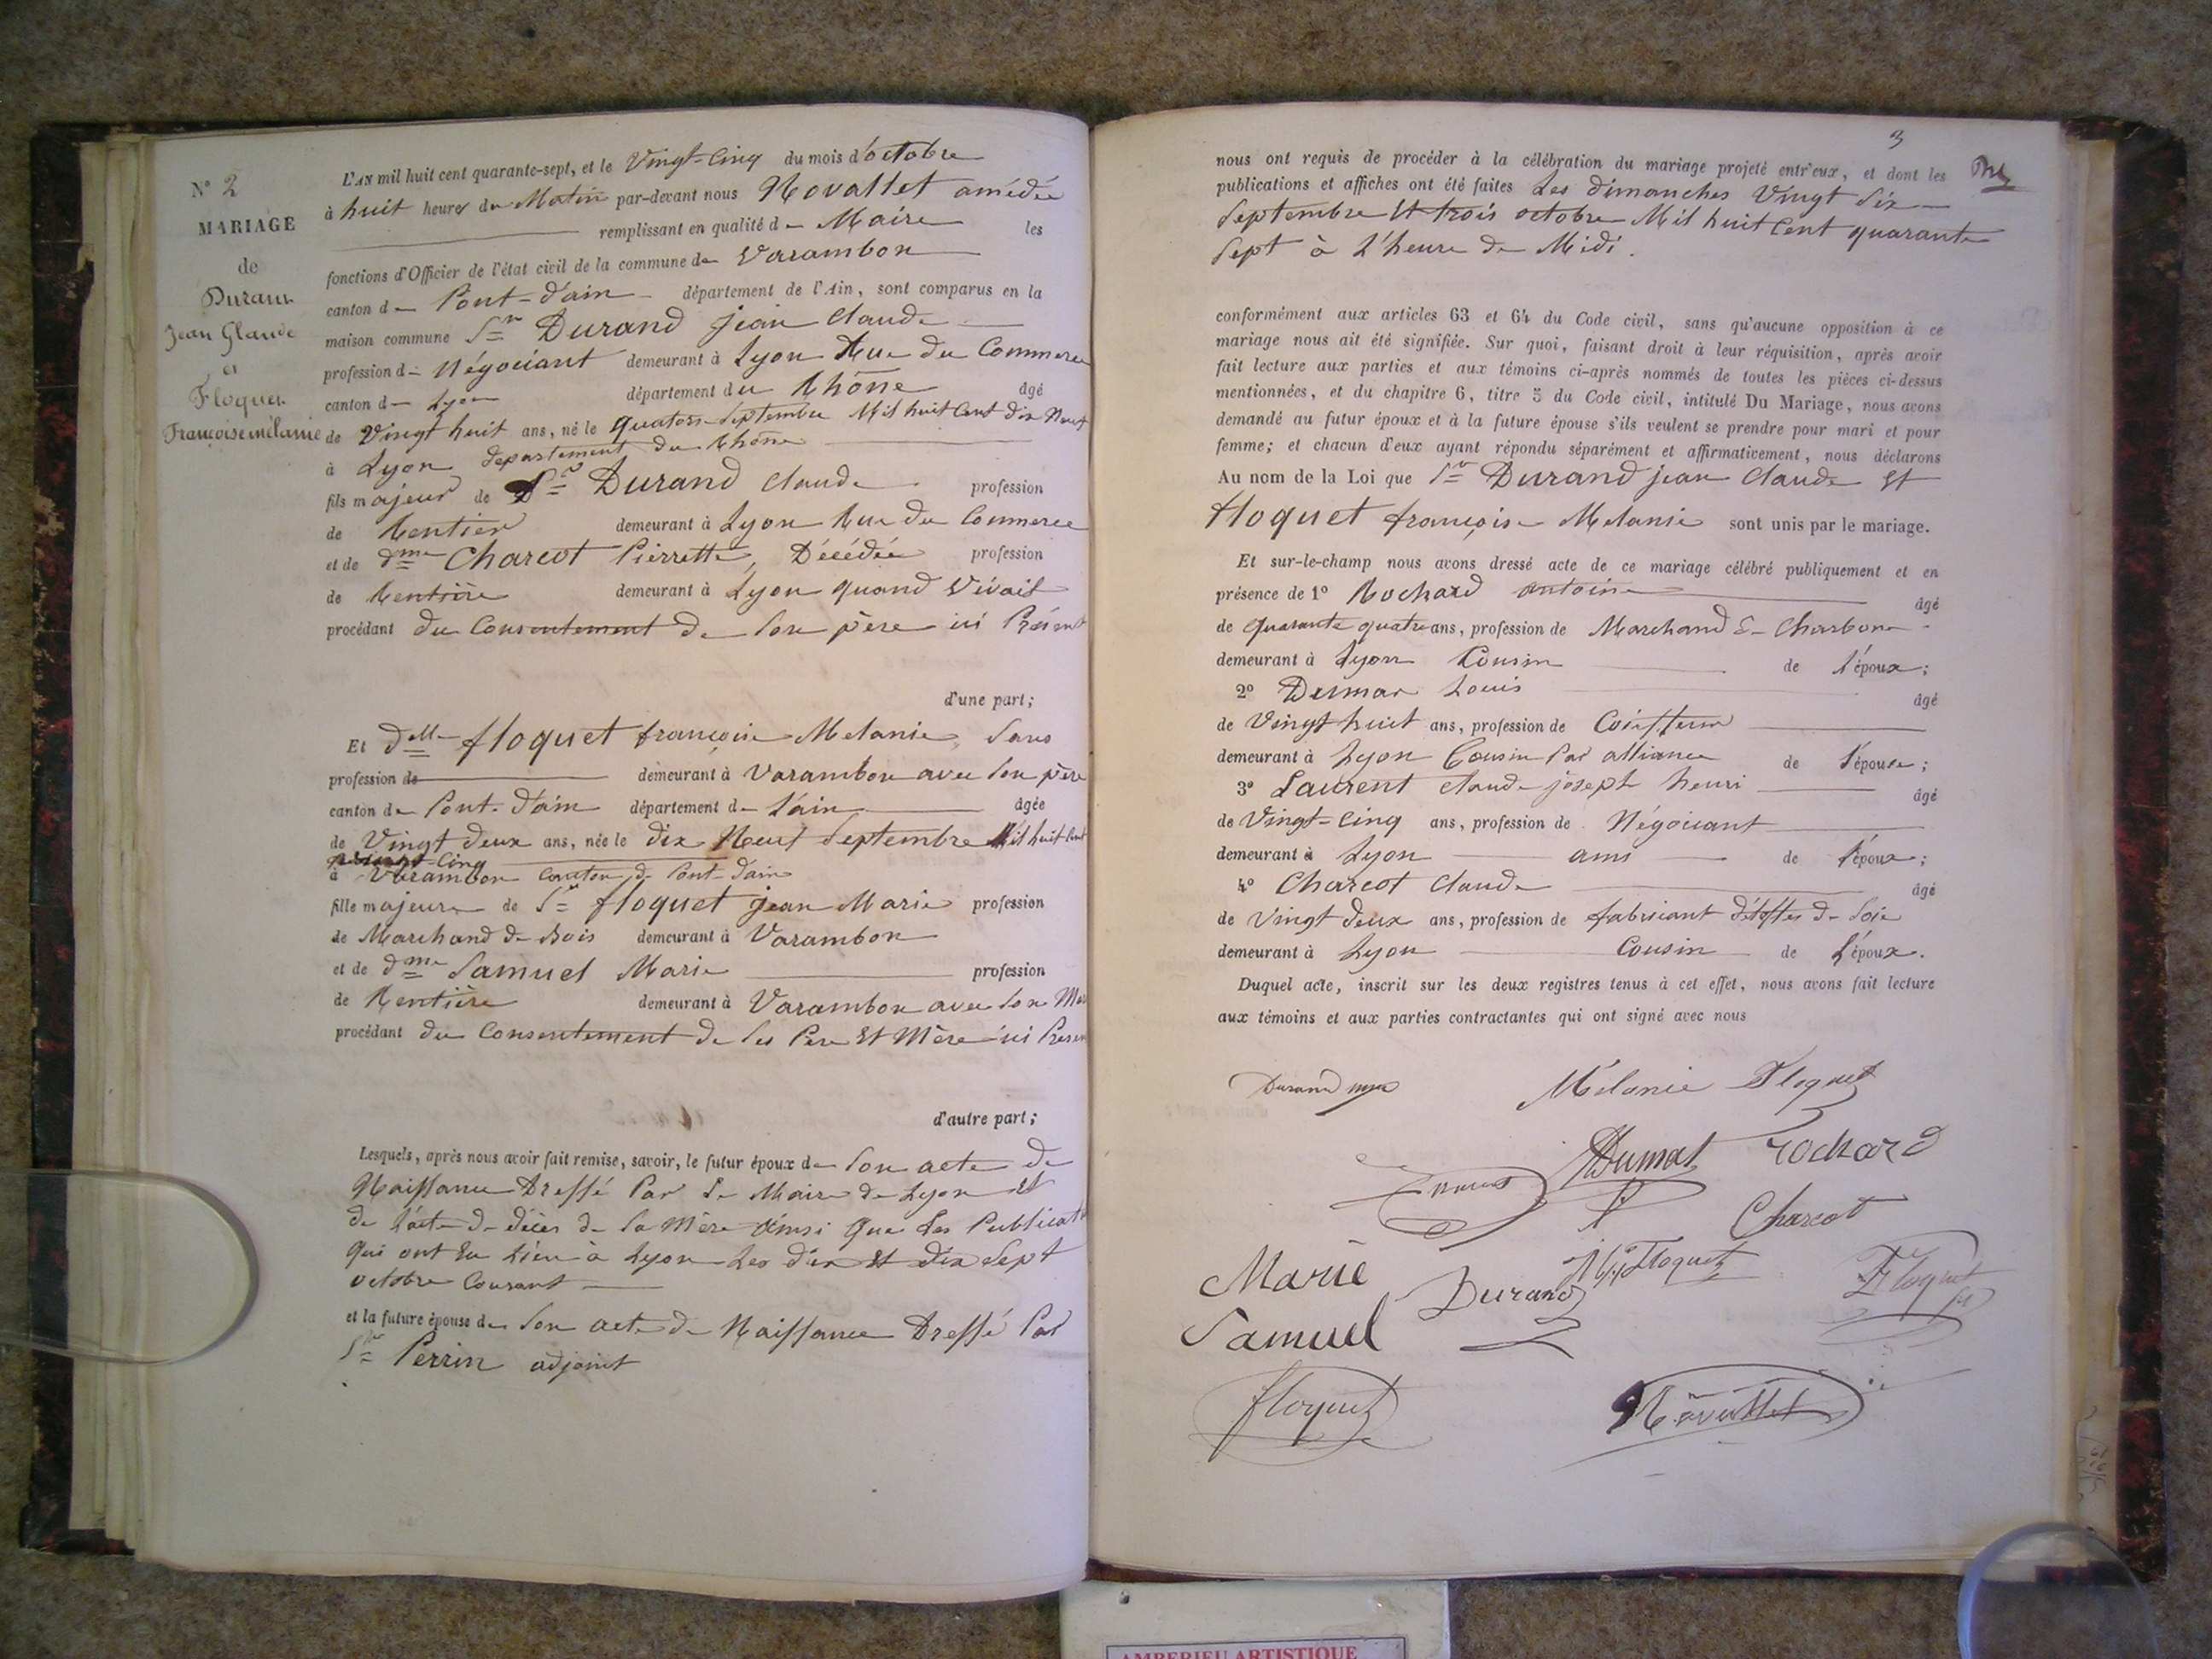 N° 2
MARIAGE
de
Durand
Jean Glaude
et
Floquet
Françoise mélanie
L'AN mil huit cent quarante-sept, et le Vingt-Cinq du mois d'octobre
à huit heures du Matin par-devant nous Novallet amédée
remplissant en qualité de Maire les
fonctions d'Officier de l'état civil de la commune de Varambon
canton de Pont-d'ain département de l'Ain, sont comparus en la
maison commune Sr Durand jean Claude
profession de Négociant demeurant à Lyon Rue du Commerce
canton de Lyon département du Rhône âgé
de Vingt huit ans, né le quatorze Septembre Mil huit Cent dix Neuf
à Lyon département du Rhône
fils majeur de Sr Durand Claude profession
de Rentier demeurant à Lyon Rue du Commerce
et de dme Charcot Pierrette, Décédée profession
de Rentière demeurant à Lyon quand Vivait
procédant du Consentement de Son père ici Présent
d'une part;
Et delle floquet françoise Melanie, Sans
profession de demeurant à Varambon avec Son père
canton de Pont-d'ain département de L'ain âgée
de Vingt Deux ans, née le dix Neuf Septembre Mil huit Cent
Vingt-Cinq
à Varambon Canton de Pont-d'ain
fille majeure de Sr floquet jean Marie profession
de Marchand de Bois demeurant à Varambon
et de dme Samuel Marie profession
de Rentière demeurant à Varambon avec Son Mari
procédant du Consentement de Ses Père Et Mère ici Présen
d'autre part;
Lesquels, après nous avoir fait remise, savoir, le futur époux de Son acte de
Naissance Dressé Par Le Maire de Lyon Et
de l'acte de décès de Sa Mère Ainsi Que Les Publicat
Qui ont Eu Lieu à Lyon Les dix Et dix Sept
octobre Courant
et la future épouse de Son acte de Naissance Dressé Par
Sr Perrin adjoint
3
nous ont requis de procéder à la célébration du mariage projeté entr'eux, et dont les
publications et affiches ont été faites Les dimanches Vingt Six
Septembre Et trois octobre Mil huit Cent quarante
Sept à L'heure de Midi.
conformément aux articles 63 et 64 du Code civil, sans qu'aucune opposition à ce
mariage nous ait été signifiée. Sur quoi, faisant droit à leur réquisition, après avoir
fait lecture aux parties et aux témoins ci-après nommés de toutes les pièces ci-dessus
mentionnées, et du chapitre 6, titre 5 du Code civil, intitulé Du Mariage, nous avons
demandé au futur époux et à la future épouse s'ils veulent se prendre pour mari et pour
femme; et chacun d'eux ayant répondu séparément et affirmativement, nous déclarons
Au nom de la Loi que Sr Durand jean Claude Et
floquet françoise Melanie sont unis par le mariage.
Et sur-le-champ nous avons dressé acte de ce mariage célébré publiquement et en
présence de 1° Rochard antoine âgé
de quarante quatre ans, profession de Marchand de Charbon
demeurant à Lyon Cousin de l'époux;
2° Dumas Louis âgé
de Vingt huit ans, profession de Coiffeur
demeurant à Lyon Cousin Par alliance de l'épouse;
3° Laurent Claude joseph henri âgé
de Vingt-Cinq ans, profession de Négociant
demeurant à Lyon ami de l'époux;
4° Charcot Claude âgé
de Vingt Deux ans, profession de fabricant d'étoffes de Soie
demeurant à Lyon Cousin de L'époux.
Duquel acte, inscrit sur les deux registres tenus à cet effet, nous avons fait lecture
aux témoins et aux parties contractantes qui ont signé avec nous
Durand Mélanie Floquet
Dumas rochard
Charcot
Marie Floquet Floquet
Durand
Samuel
floquet Novallet
AMBERIEU ARTISTIQUE